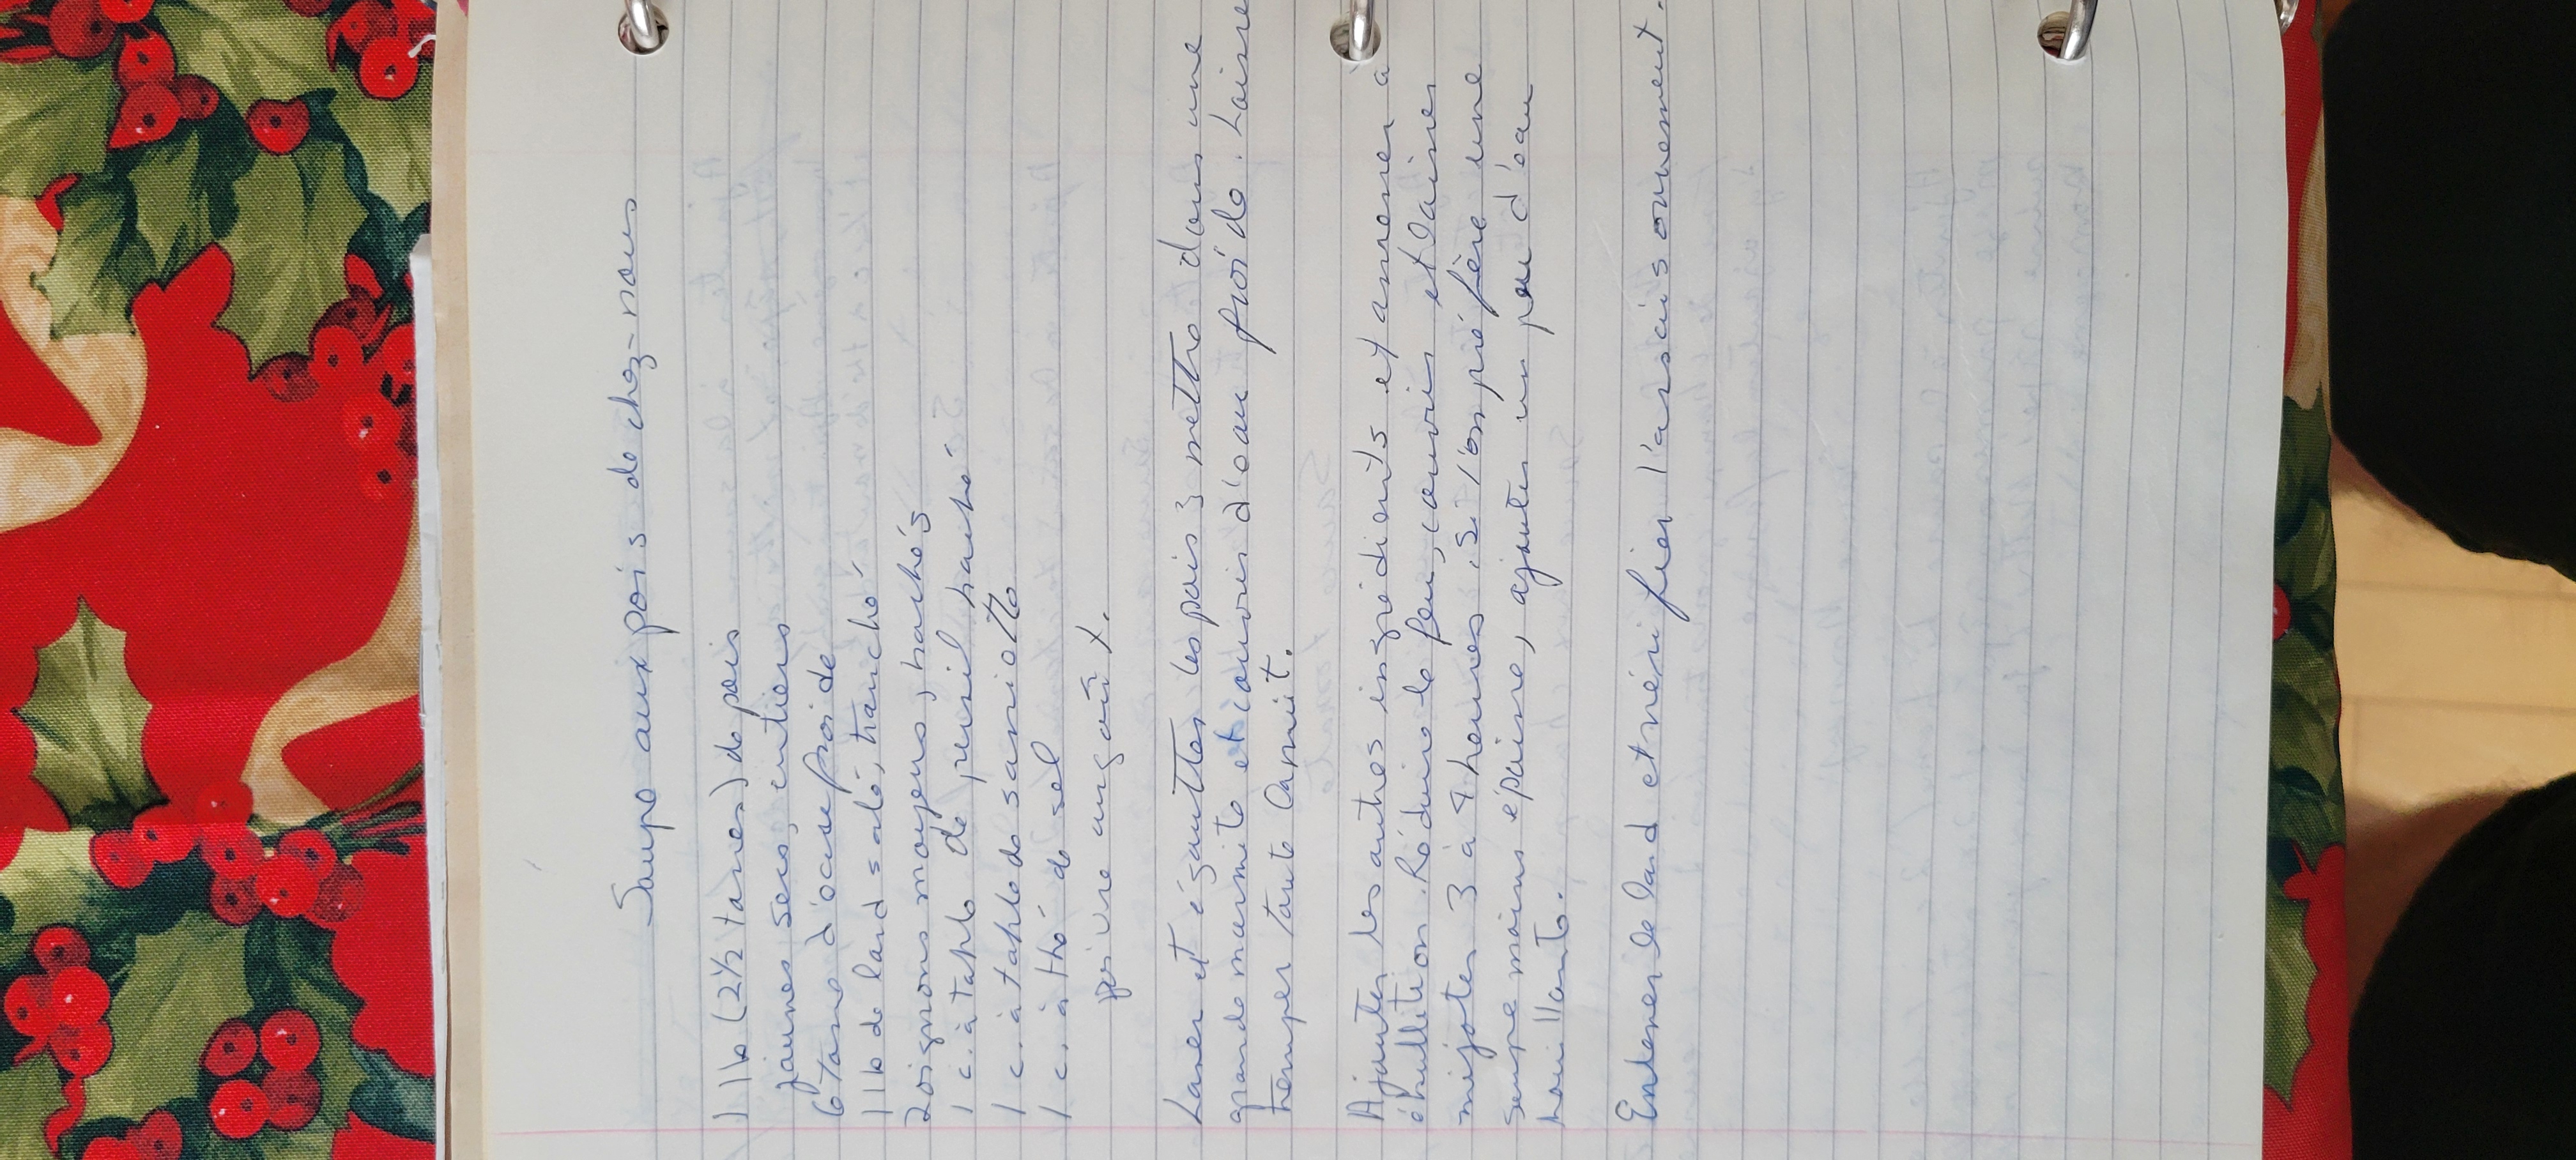 Soupe aux pois de chez-nous
1 lb (2½ tasses) de pois
jaunes secs, entiers
6 tasse d'eau froide
1 lb de lard salé, tranché
2 oignons moyens, hachés
1 c. à table de persil haché
1 c. à table de sariette
1 c. à thé de sel
poivre au goût.
Laver et égoutter les pois; mettre dans une
grande marmite et couvrir d'eau froide. Laisser
tremper toute la nuit.
Ajouter les autres ingrédients et amener à
ébullition. Réduire le feu, couvrir et laisser
mijoter 3 à 4 heures, si l'on préfère une
soupe moins épaisse, ajouter un peu d'eau
bouillante.
Enlever le lard et vérifier l'assaisonnement.